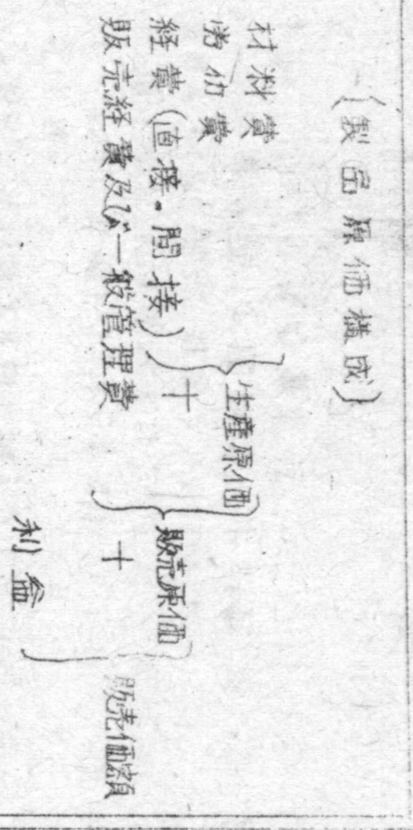 (製品原価構成)
材料費
労働費
経費(直接・間接)
生産原価
+
販売経費及び一般管理費
販売原価
+
利益
販売価額